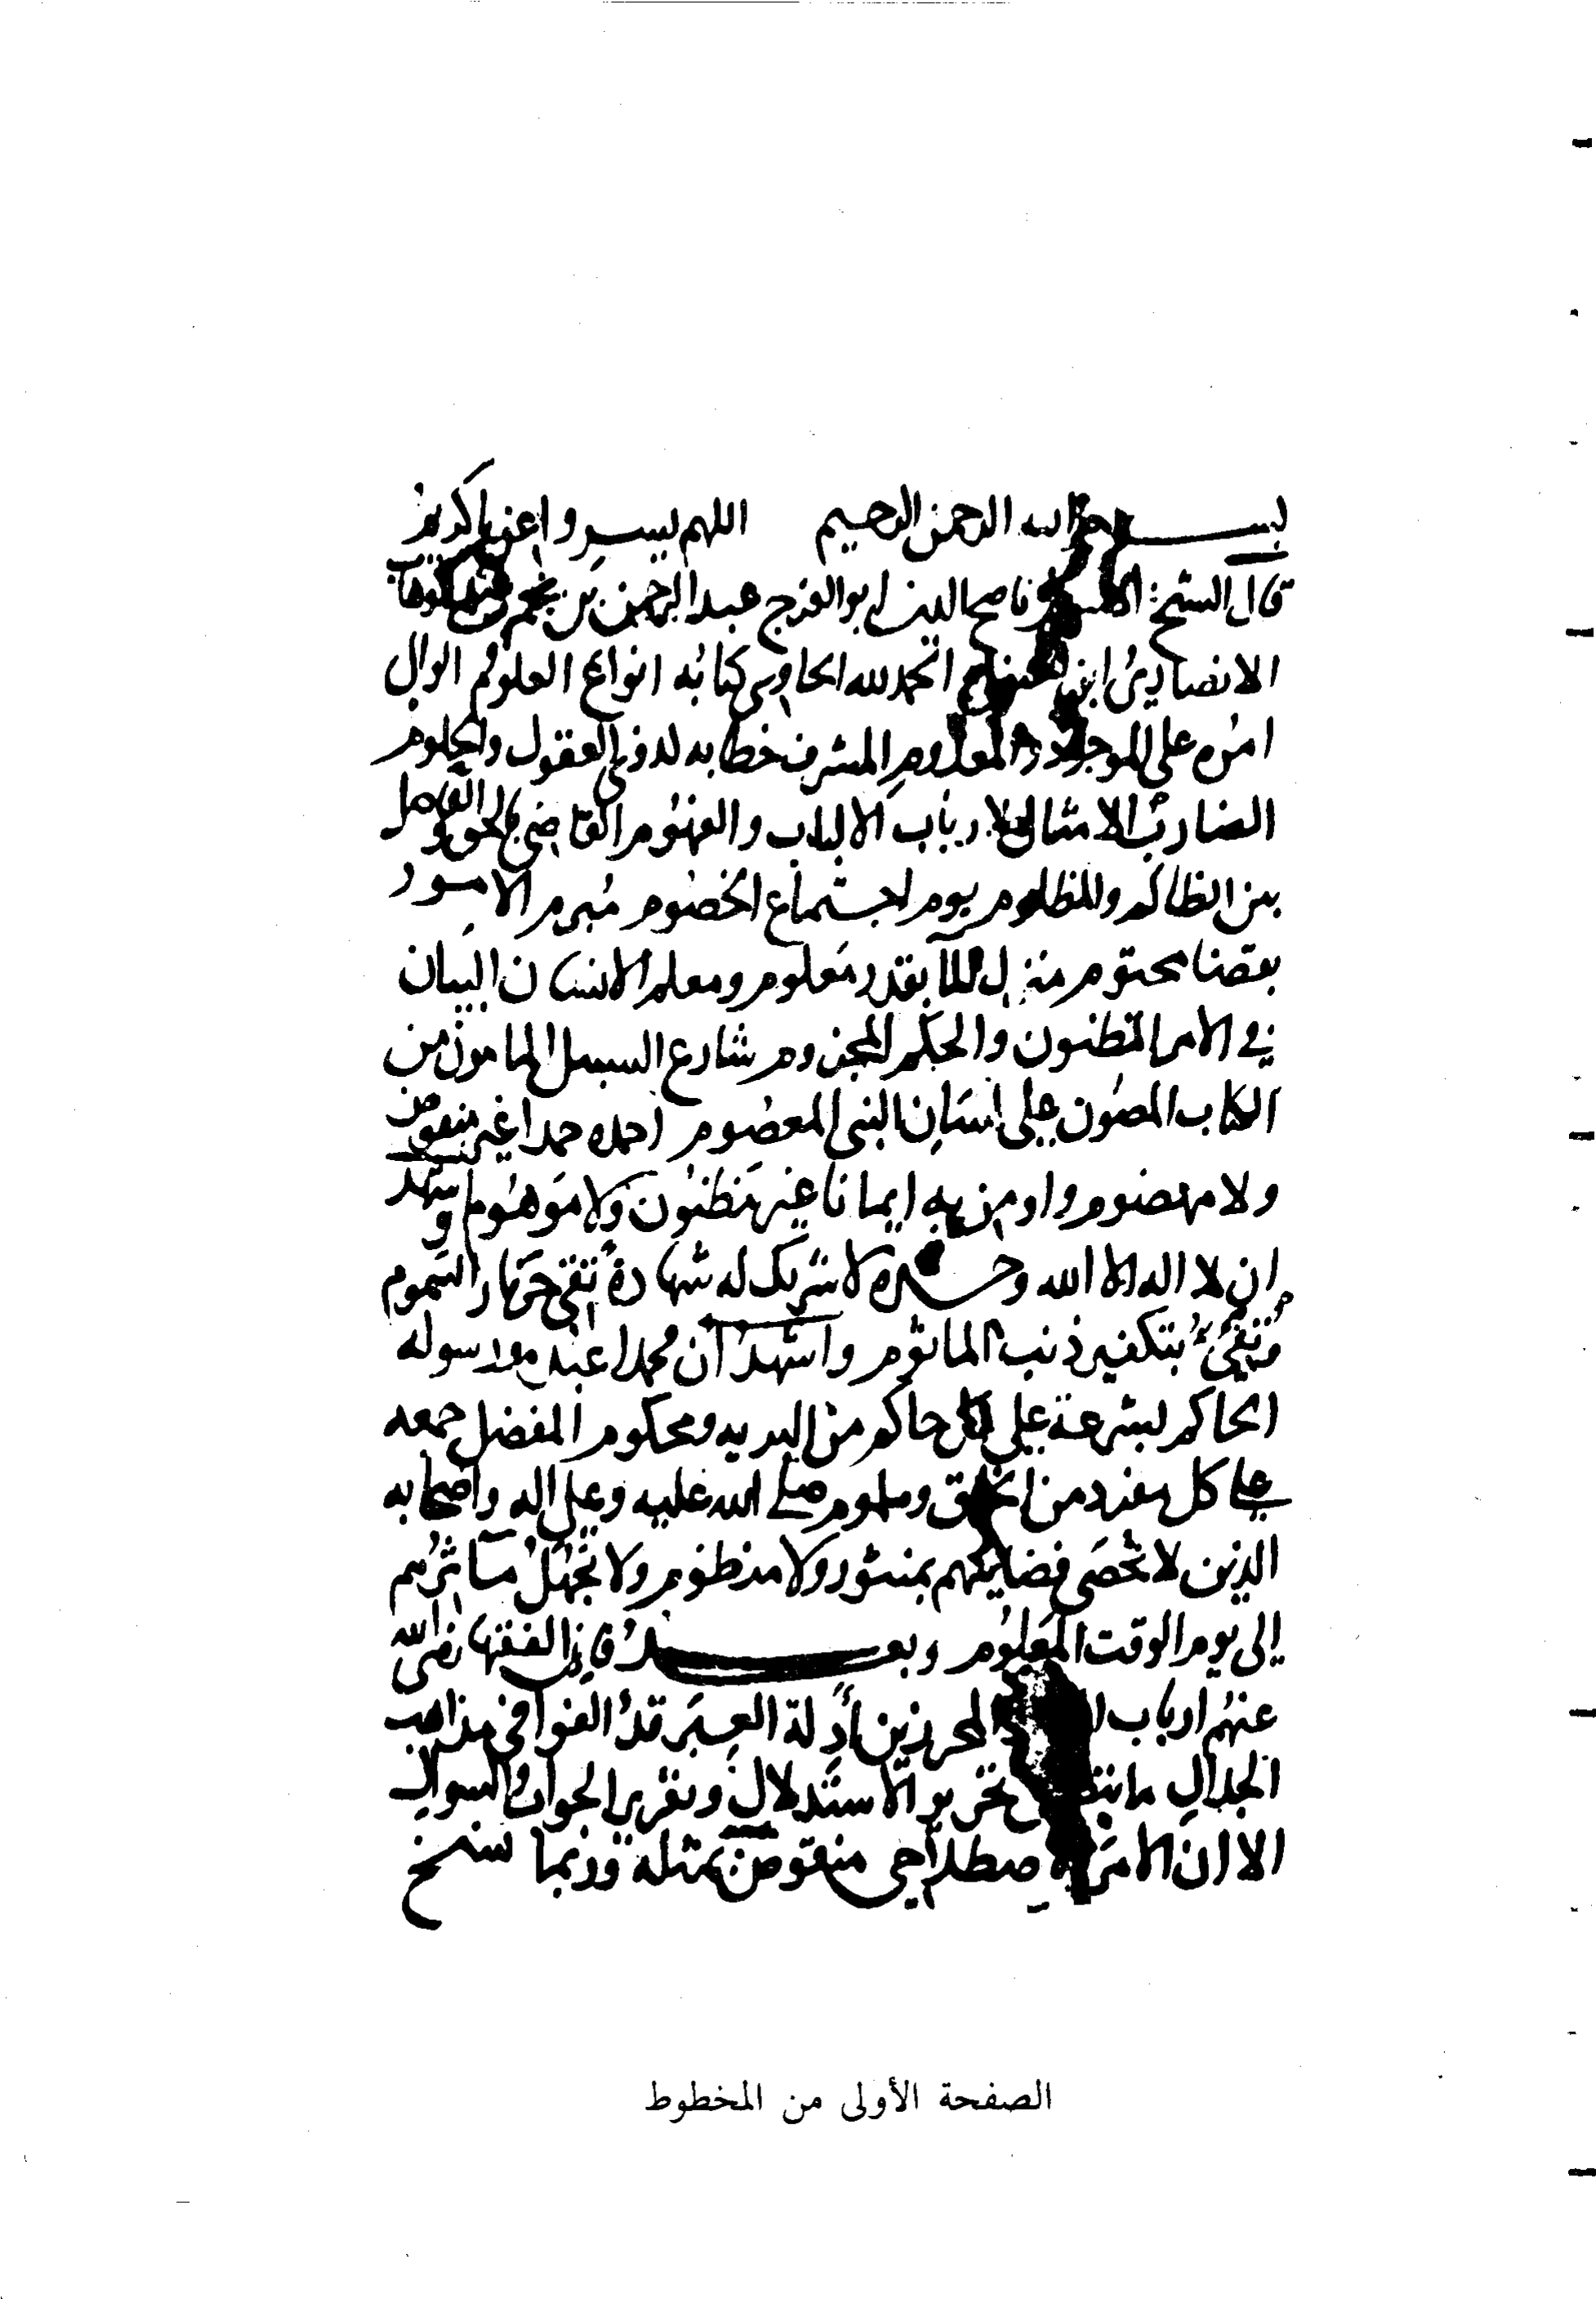 بسم الله الرحمن الرحيم اللهم يسر واعن يا كريم
قال الشيخ ناصح الدين ابو الفرج عبد الرحمن بن نجم بن عبد الوهاب
الانصاري ابن الحنبلي الحمد لله الحاوي كتابه انواع العلوم الدال
امره على الموجود والمعدوم المشرف خطابه لذوي العقول والحلوم
الضارب الامثال لارباب الالباب والفهوم القاضي بالحق والفاصل
بين الظالم والمظلوم يوم اجتماع الخصوم مبرم الامور
بقضا محتوم منزل الما بقدر معلوم ومعلم الانسان البيان
في الامر المظنون والحكم المجزوم شارع السبل المامون من
الكتاب المصون على لسان النبي المعصوم احمده حمدا غير منقوص
ولا مهضوم واومن به ايمانا غير مظنون ولا موهوم واشهد
ان لا اله الا الله وحده لا شريك له شهادة تقي حر نار السموم
وتنقي بتكفير ذنب الماثوم واشهد ان محمدا عبده ورسوله
الحاكم بشرعة على كل حاكم من البريه ومحكوم المفضل جمعه
على كل مفرد من الخلق وملموم صلى الله عليه وعلى اله واصحابه
الذين لا تحصى فضايلهم بمنثور ولا منظوم ولا تجهل مآثرهم
إلى يوم الوقت المعلوم وبعد فان الفقها رضى الله
عنهم ارباب المحرزين أدلة العبر قد الفوا في مذاهب
الجدال ما تحرير الاستدلال وتقرير الجواب والسوال
الا ان الامر الاصطلاحي منقوض بمثله وربما سنح
الصفحة الأولى من المخطوط